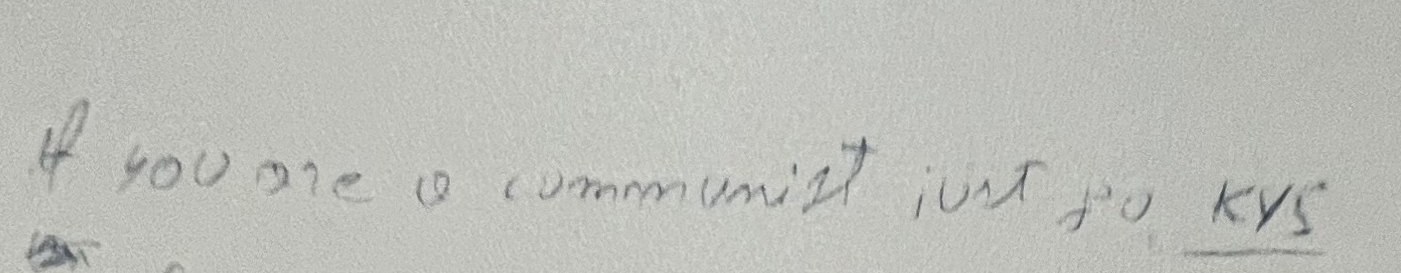 If you are a communist just go KYS